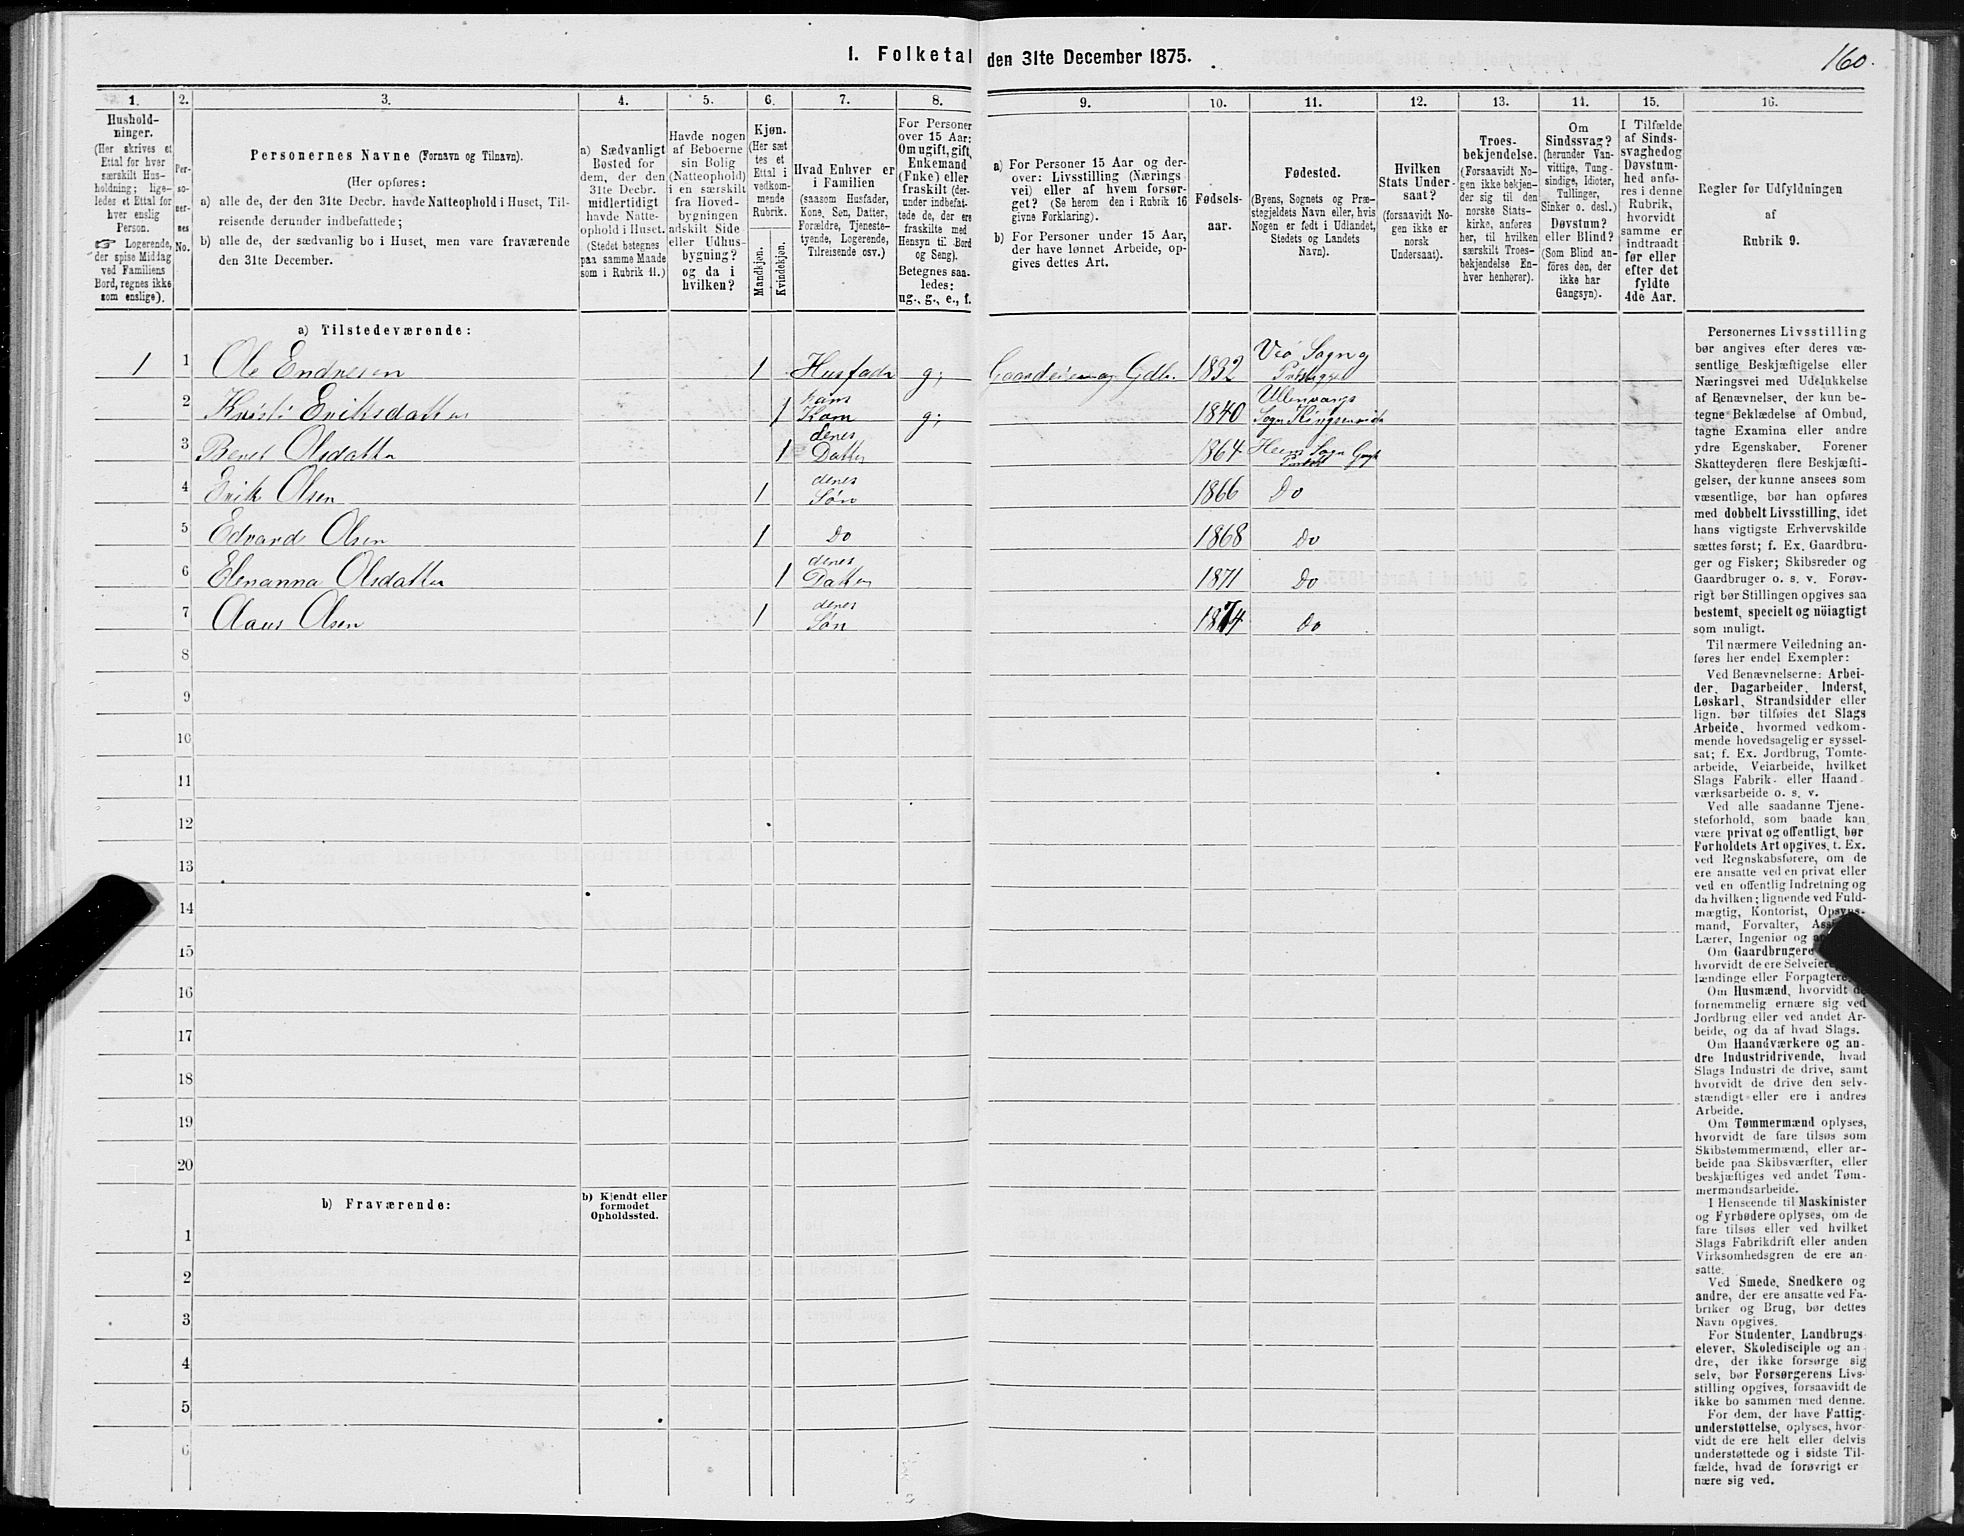 1. Folketal den 31te December 1875.
160.
1. 2. 3. 4. 5. 6. 7. 8. 9. 10. 11. 12. 13. 14. 15. 16.
Hushold-
ninger.
(Her skrives et
Ettal for hver
særskilt Hus-
holdning; lige-
ledes et Ettal for
hver enslig
Person.
☞ Logerende,
der spise Middag
ved Familiens
Bord, regnes ikke
som enslige).
Per-
so-
ner-
nes
No.
Personernes Navne (Fornavn og Tilnavn).
(Her opføres:
a) alle de, der den 31te Decbr. havde Natteophold i Huset, Til-
reisende derunder indbefattede;
b) alle de, der sædvanlig bo i Huset, men vare fraværende
den 31te December.
a) Sædvanligt
Bosted for
dem, der den
31te Decbr.
midlertidigt
havde Natte-
ophold i Huset.
(Stedet betegnes
paa samme Maade
som i Rubrik 11.)
Havde nogen
af Beboerne
sin Bolig
(Natteophold)
i en særskilt
fra Hoved-
bygningen
adskilt Side
eller Udhus-
bygning?
og da i
hvilken?
Kjøn.
(Her sæt
tes et
Ettal i
vedkom-
mende
Rubrik.
Mandkjøn.
Kvindekjøn.
Hvad Enhver er
i Familien
(saasom Husfader,
Kone, Søn, Datter,
Forældre, Tjeneste-
tyende, Logerende,
Tilreisende osv.)
For Personer
over 15 Aar:
Om ugift, gift,
Enkemand
(Enke) eller
fraskilt (der-
under indbefat-
tede de, der ere
fraskilte med
Hensyn til Bord
og Seng).
Betegnes saa-
ledes:
ug., g., e., f.
a) For Personer 15 Aar og der-
over: Livsstilling (Nærings
vei) eller af hvem forsør-
get? (Se herom den i Rubrik 16
givne Forklaring).
b) For Personer under 15 Aar,
der have lønnet Arbeide, op-
gives dettes Art.
Fødsels-
aar.
Fødested.
(Byens, Sognets og Præ-
stegjeldets Navn eller, hvis
Nogen er født i Udlandet,
Stedets og Landets
Navn).
Hvilken
Stats Under-
saat?
(forsaavidt No-
gen ikke er
norsk
Undersaat).
Troes-
bekjendelse.
(Forsaavidt No-
gen ikke bekjen-
der sig til den
norske Stats-
kirke, anføres
her, til hvilken
særskilt Troes-
bekjendelse En-
hver henhører).
Om
Sindssvag?
(herunder Van-
vittige, Tung-
sindige, Idioter,
Tullinger,
Sinker o. desl.)
Døvstum?
eller Blind?
(Som Blind an-
føres den, der
ikke har
Gangsyn).
I Tilfælde
af Sinds-
svaghed og
Døvstum-
hed anfø-
res i denne
Rubrik,
hvorvidt
samme er
indtraadt
før eller
efter det
fyldte
4de Aar.
Regler for Udfyldningen
af
Rubrik 9.
a) Tilstedeværende:
1 1 Ole Endresen 1 Husfader g; Gaardeier og Gdb. 1832 Veø Sogn og
2 Kristi Eriksdatter 1 hans Kone g; 1840 Ullensvangs
Sogn Kingservik
3 Beret Olsdatter 1 deres Datter 1864 Hems Sogn
4 Erik Olsen 1 deres Søn 1866 Do
5 Edvard Olsen 1 Do 1868 Do
6 Elenanna Olsdatter 1 deres Datter 1871 Do
7 Claus Olsen 1 deres Søn 1874 Do
8
9
10
11
12
13
14
15
16
17
18
19
20
b) Fraværende:
b) Kjendt eller
formodet
Opholdssted.
1
2
3
4
5
6
Personernes Livsstilling
bør angives efter deres væ-
sentlige Beskjæftigelse eller
Næringsvei med Udelukkelse
af Benævnelser, der kun be-
tegne Beklædelse af Ombud,
tagne Examina eller andre
ydre Egenskaber. Forener
Skatteyderen flere Beskjæfti-
gelser, der kunne ansees som
væsentlige, bør han opføres
med dobbelt Livsstilling, idet
hans vigtigste Erhvervskilde
sættes først; f. Ex. Gaardbru-
ger og Fisker; Skibsreder og
Gaardbruger o. s. v. Forøv-
rigt bør Stillingen opgives saa
bestemt, specielt og nöiagtigt
som muligt.
Til nærmere Veiledning an-
føres her endel Exempler:
Ved Benævnelserne: Arbei-
der, Dagarbeider, Inderst,
Løskarl, Strandsidder eller
lign. bør tilføies det Slags
Arbeide, hvormed vedkom-
mende hovedsagelig er syssel-
sat; f. Ex. Jordbrug, Tomte-
arbeide, Veiarbeide, hvilket
Slags Fabrik- eller Haand-
værksarbeide o. s. v.
Ved alle saadanne Tjene-
steforhold, som baade kan
være privat og offentligt, bør
Forholdets Art opgives, t. Ex.
ved Regnskabsførere, om de
ere ansatte ved en privat eller
ved en offentlig Indretning og
da hvilken; lignende ved Fuld-
mægtig, Kontorist, Opsyns-
mand, Forvalter,
Lærer, Ingeniør og
Om Gaardbrugere
hvorvidt de ere Selveiere
lændinge eller Forpagtere
Om Husmænd, hvorvidt de
fornemmelig ernære sig ved
Jordbrug eller ved andet Ar-
beide, og da af hvad Slags.
Om Haandværkere og an-
dre Industridrivende, hvad
Slags Industri de drive, samt
hvorvidt de drive den selv-
stændigt eller ere i andres
Arbeide.
Om Tømmermænd oplyses,
hvorvidt de fare tilsøs som
Skibstømmermænd, eller ar-
beide paa Skibsværfter, eller
beskjæftiges ved andet Tøm-
mermandsarbeide.
I Henseende til Maskinister
og Fyrbødere oplyses, om de
fare tilsøs eller ved hvilket
Slags Fabrikdrift eller anden
Virksomhedsgren de ere an-
satte.
Ved Smede, Snedkere og
andre, der ere ansatte ved Fa-
briker og Brug, bør dettes
Navn opgives.
For Studenter, Landbrugs-
elever, Skoledisciple og an-
dre, der ikke forsørge sig
selv, bør Forsørgerens Livs-
stilling opgives, forsaavidt de
ikke bo sammen med denne.
For dem, der have Fattig-
understøttelse, oplyses, hvor-
vidt de ere helt eller delvis
understøttede og i sidste Til-
fælde, hvad de forøvrigt er
nære sig ved.